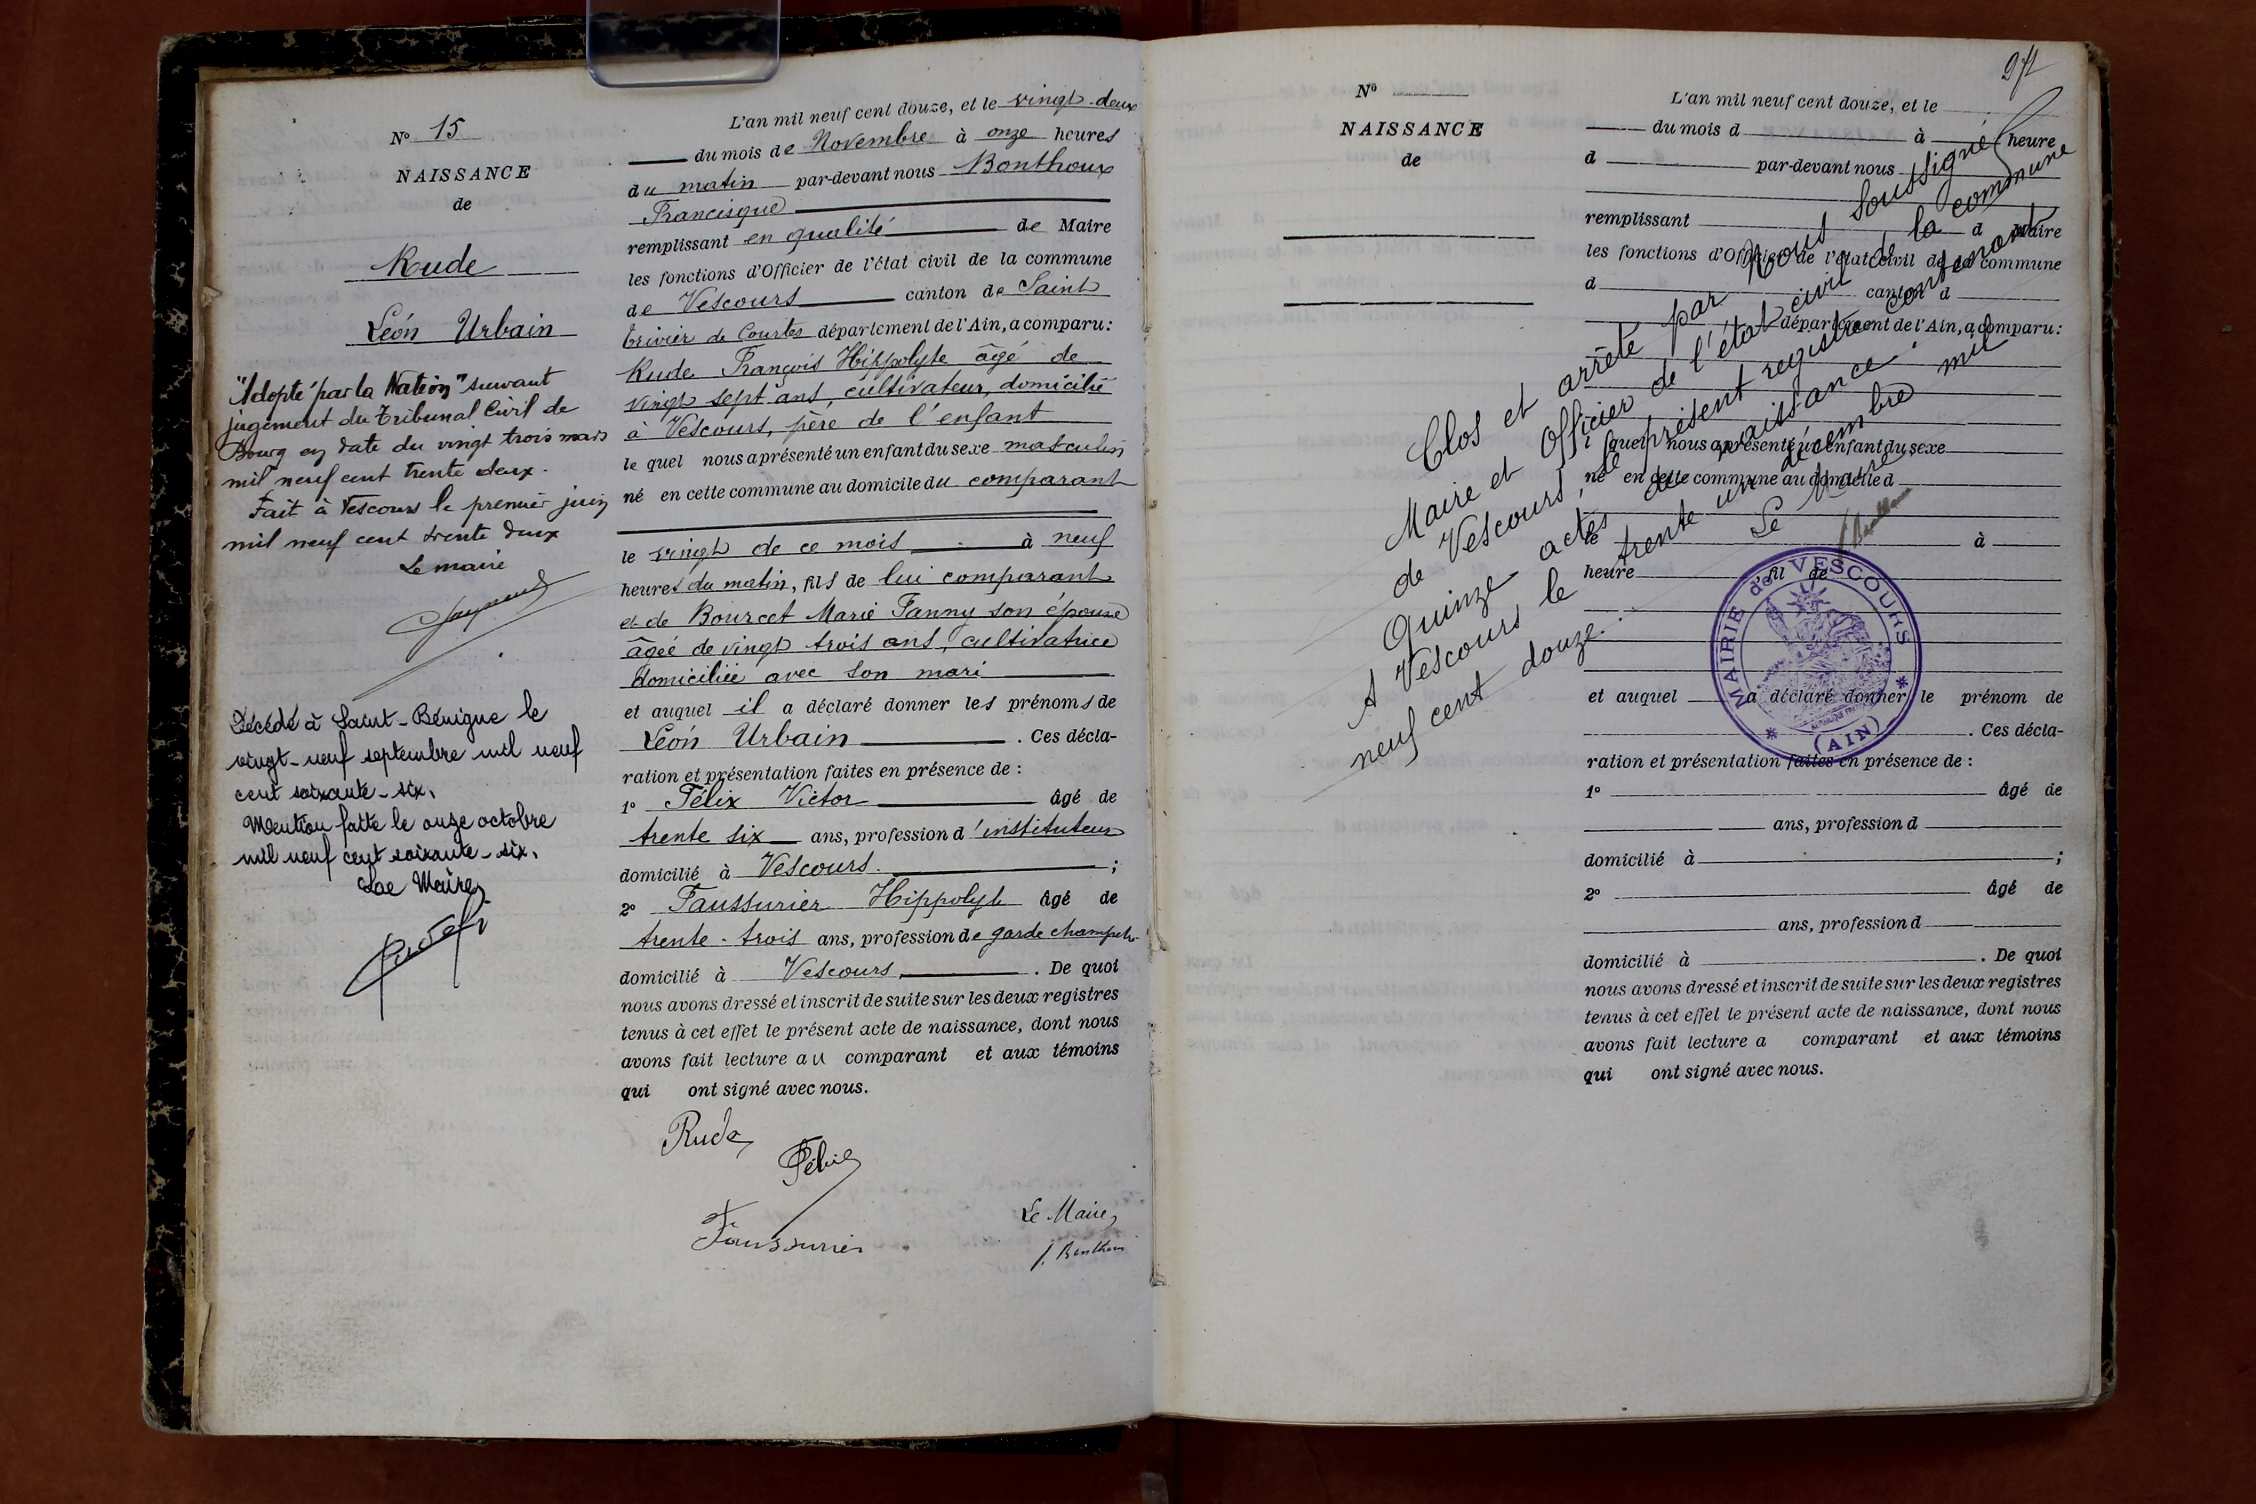 Nº 15
NAISSANCE
de
Rude
Léon Urbain
"Adopté par la Nation" suivant
jugement du Tribunal Civil de
Bourg en date du vingt trois mars
mil neuf cent trente deux.
Fait à Vescours le premier juin
mil neuf cent trente deux
Le maire
Décédé à Saint-Bénigne le
vingt-neuf septembre mil neuf
cent soixante-six.
Mention faite le onze octobre
mil neuf cent soixante-six.
Le Maire
L'an mil neuf cent douze, et le vingt-deux
du mois de Novembre à onze heures
du matin par-devant nous Bonthoux
Francisque
remplissant en qualité de Maire
les fonctions d'Officier de l'état civil de la commune
de Vescours canton de Saint
Trivier de Courtes département de l'Ain, a comparu:
Rude François Hippolyte âgé de
vingt sept ans, cultivateur, domicilié
à Vescours, père de l'enfant
le quel nous a présenté un enfant du sexe masculin
né en cette commune au domicile du comparant
le vingt de ce mois à neuf
heures du matin, fils de lui comparant
et de Bourcet Marie Fanny son épouse
âgée de vingt trois ans, cultivatrice
domiciliée avec son mari
et auquel il a déclaré donner les prénoms de
Léon Urbain . Ces décla-
ration et présentation faites en présence de :
1º Félix Victor âgé de
trente six ans, profession d'instituteur
domicilié à Vescours. ;
2º Faussurier Hippolyte âgé de
trente-trois ans, profession de garde champêtre
domicilié à Vescours . De quoi
nous avons dressé et inscrit de suite sur les deux registres
tenus à cet effet le présent acte de naissance, dont nous
avons fait lecture au comparant et aux témoins
qui ont signé avec nous.
Rude
Félix
Faussurier
Le Maire
f. Bonthoux
97
Nº
NAISSANCE
de
L'an mil neuf cent douze, et le
du mois d à heure
d par-devant nous
remplissant d Maire
les fonctions d'Officier de l'état civil de la commune
d canton d
département de l'Ain, a comparu:
l quel nous a présenté un enfant du sexe
né en cette commune au domicile d
le à
heure d , fil de
et auquel a déclaré donner le prénom de
. Ces décla-
ration et présentation faites en présence de :
1º âgé de
ans, profession d
domicilié à ;
2º âgé de
ans, profession d
domicilié à . De quoi
nous avons dressé et inscrit de suite sur les deux registres
tenus à cet effet le présent acte de naissance, dont nous
avons fait lecture a comparant et aux témoins
qui ont signé avec nous.
Clos et arrêté par Nous soussigné
Maire et Officier de l'état civil de la commune
de Vescours, le présent registre contenant
Quinze actes de naissance.
A Vescours le trente un décembre mil
neuf cent douze.
Le Maire
f. Bonthoux
MAIRIE de VESCOURS
(AIN)